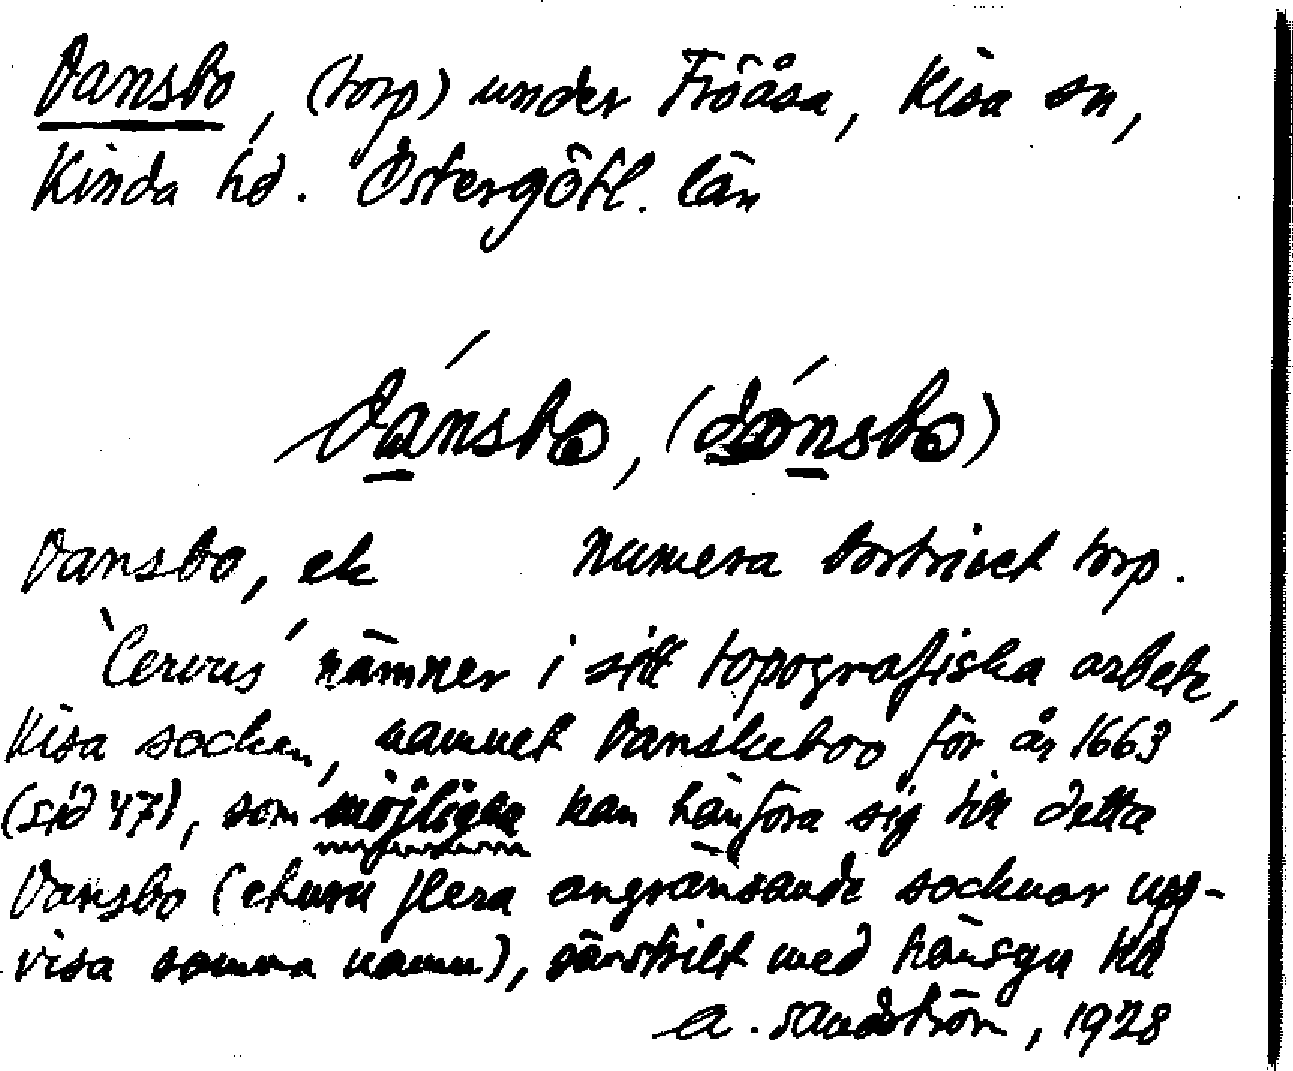 Dansbo, (torp) under Fröåsa, Kisa sn,
Kinda hd. Östergötl. län
dánsbo, (dånsbo)
Dansbo, ek numera bortrivet torp.
'Cervus' nämner i sitt topografiska arbete,
Kisa socken, namnet Danskeboo för år 1663
(sid 47), som möjligen kan hänföra sig till detta
Dansbo (ehuru flera angränsande socknar upp-
visa samma namn), särskilt med hänsyn till
A. Sandström, 1928